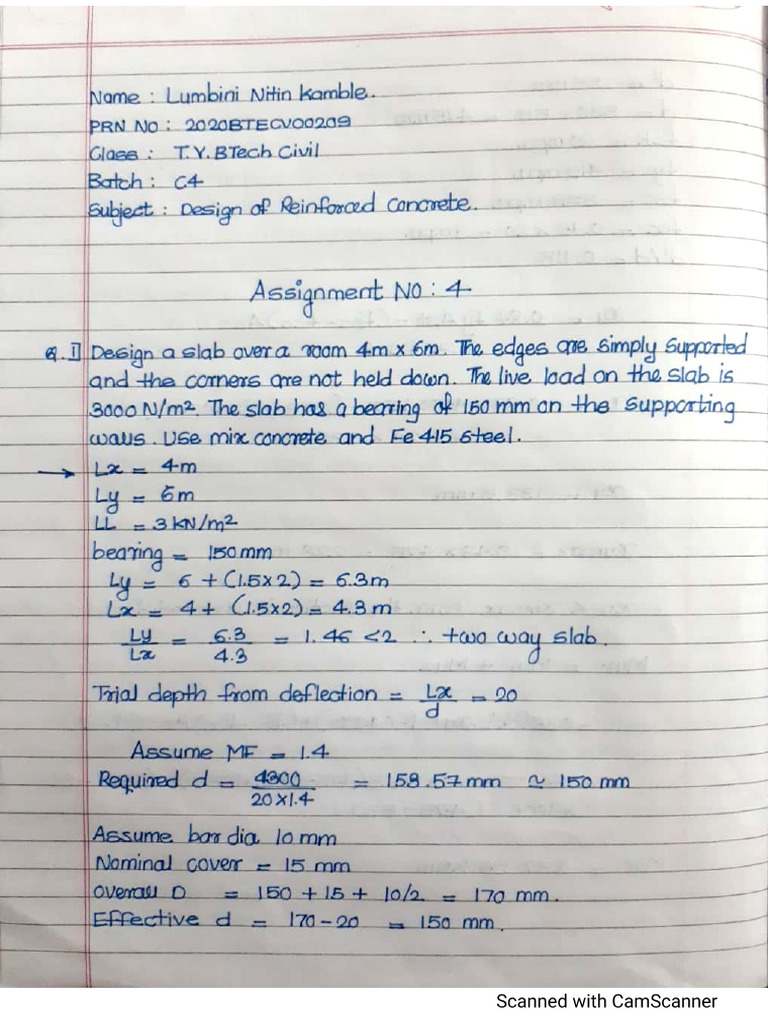 Name : Lumbini Nitin Kamble.
PRN No : 2020BTECV00209
Class : T.Y. BTech Civil
Batch : C4
Subject : Design of Reinforced Concrete.
Assignment No : 4
Q.1] Design a slab over a room 4m x 6m. The edges are simply supported
and the corners are not held down. The live load on the slab is
3000 N/m². The slab has a bearing of 150 mm on the supporting
walls. Use mix concrete and Fe 415 steel.
→ Lx = 4m
Ly = 6m
LL = 3 kN/m²
bearing = 150mm
Ly = 6 + (1.5x2) = 6.3m
Lx = 4 + (1.5x2) = 4.3 m
Ly/Lx = 6.3/4.3 = 1.46 <2 ∴ two way slab.
Trial depth from deflection = Lx/d = 20
Assume MF = 1.4
Required d = 4300/20x1.4 = 158.57 mm ≈ 150 mm
Assume bar dia 10 mm
Nominal cover = 15 mm
Overall D = 150 + 15 + 10/2 = 170 mm.
Effective d = 170 - 20 = 150 mm.
Scanned with CamScanner